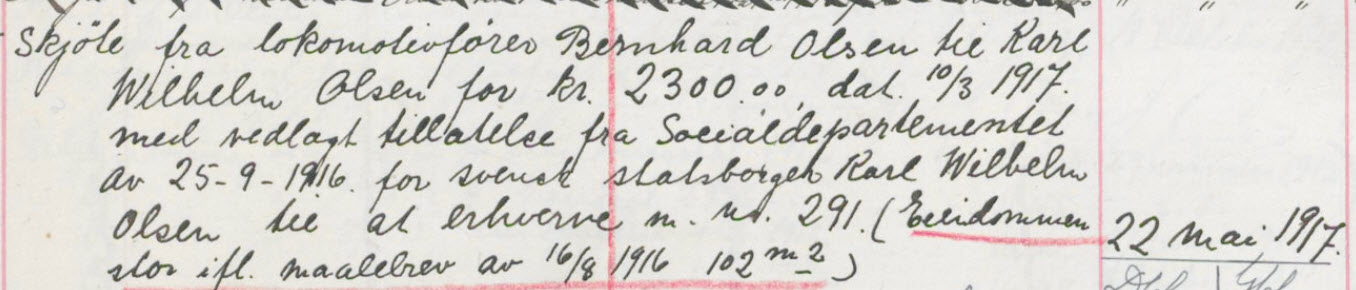 Skjöte fra lokomotivfører Bernhard Olsen til Karl
Wilhelm Olsen for kr. 2300.00, dat. 10/3 1917.
med vedlagt tillatelse fra Socialdepartementet
av 25-9-1916. for svensk statsborger Karl Wilhelm
Olsen til at erhverve m. nr. 291. (Eiendommen
stor ifl. maalebrev av 16/8 1916 102 m2)
22 mai 1917.